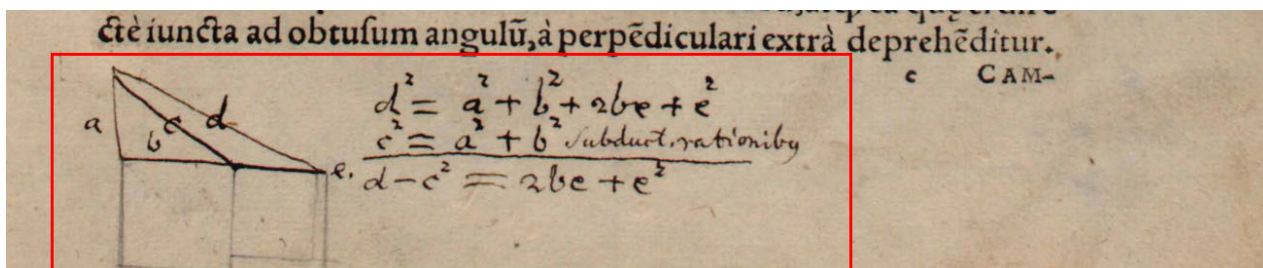 ctè iuncta ad obtusum angulũ, à perpẽdiculari extrà deprehẽditur.
c CAM-
a b c d e.
d² = a² + b² + 2be + e²
c² = a² + b² subduct. rationiby
d - c² = 2be + e²